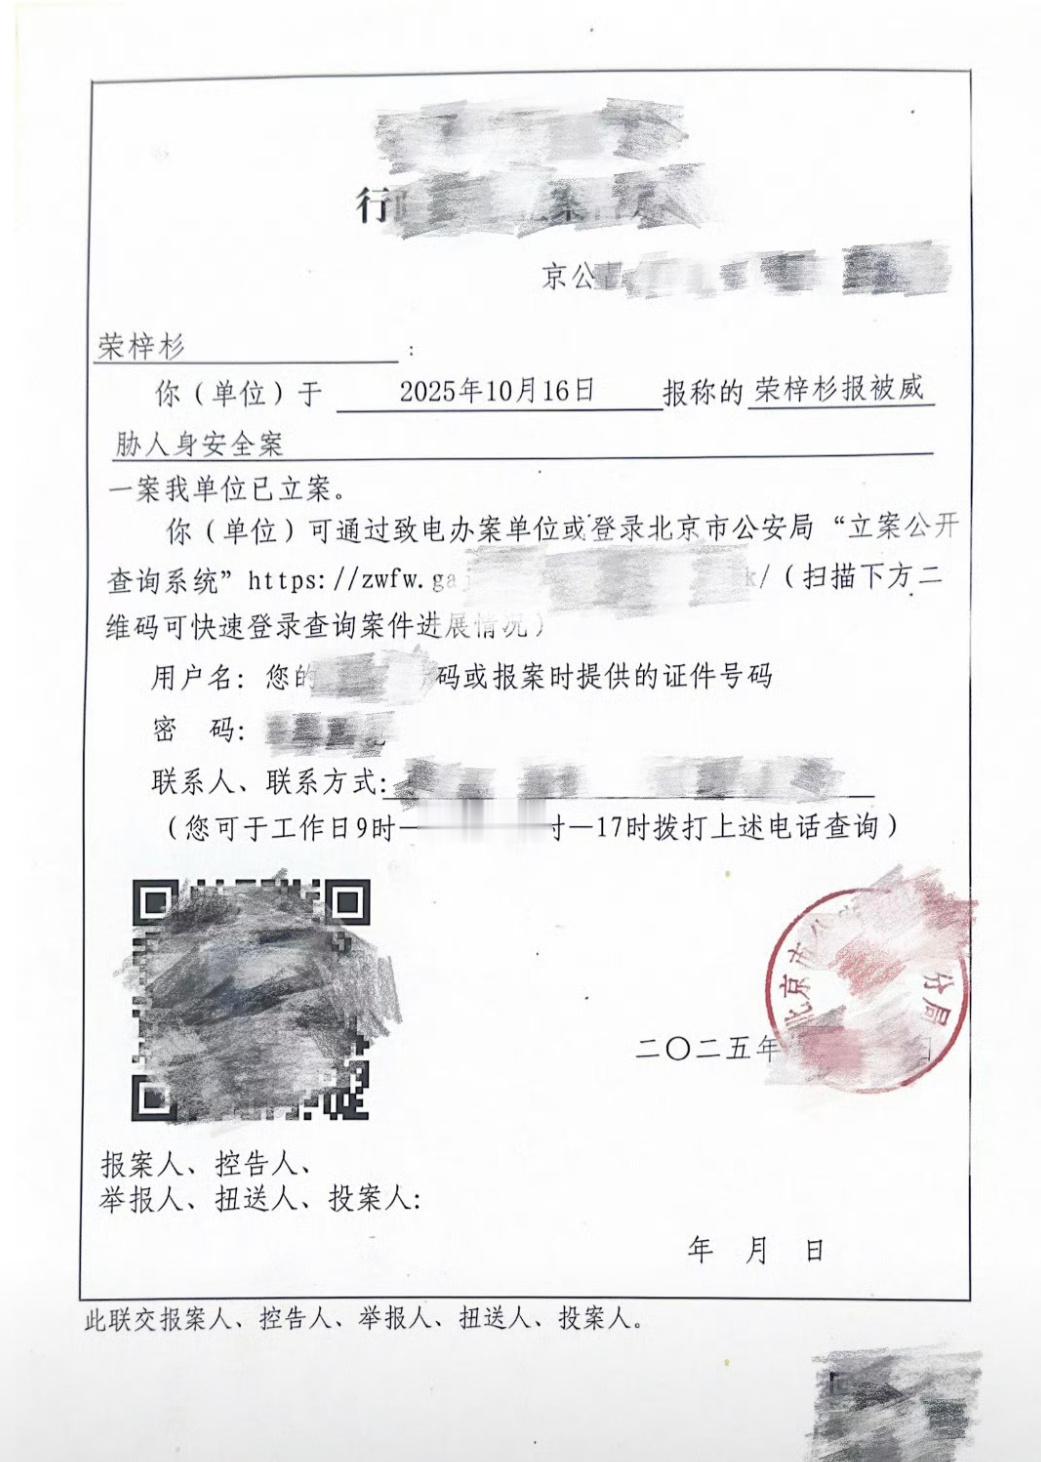 行
京公
荣梓杉：
你（单位）于 2025年10月16日 报称的 荣梓杉报被威
胁人身安全案
一案我单位已立案。
你（单位）可通过致电办案单位或登录北京市公安局“立案公开
查询系统”https://zwfw.ga /（扫描下方二
维码可快速登录查询案件进展情况）
用户名：您的 码或报案时提供的证件号码
密 码：
联系人、联系方式：
（您可于工作日9时— 时—17时拨打上述电话查询）
北京市 分局
二〇二五年
报案人、控告人、
举报人、扭送人、投案人：
年 月 日
此联交报案人、控告人、举报人、扭送人、投案人。